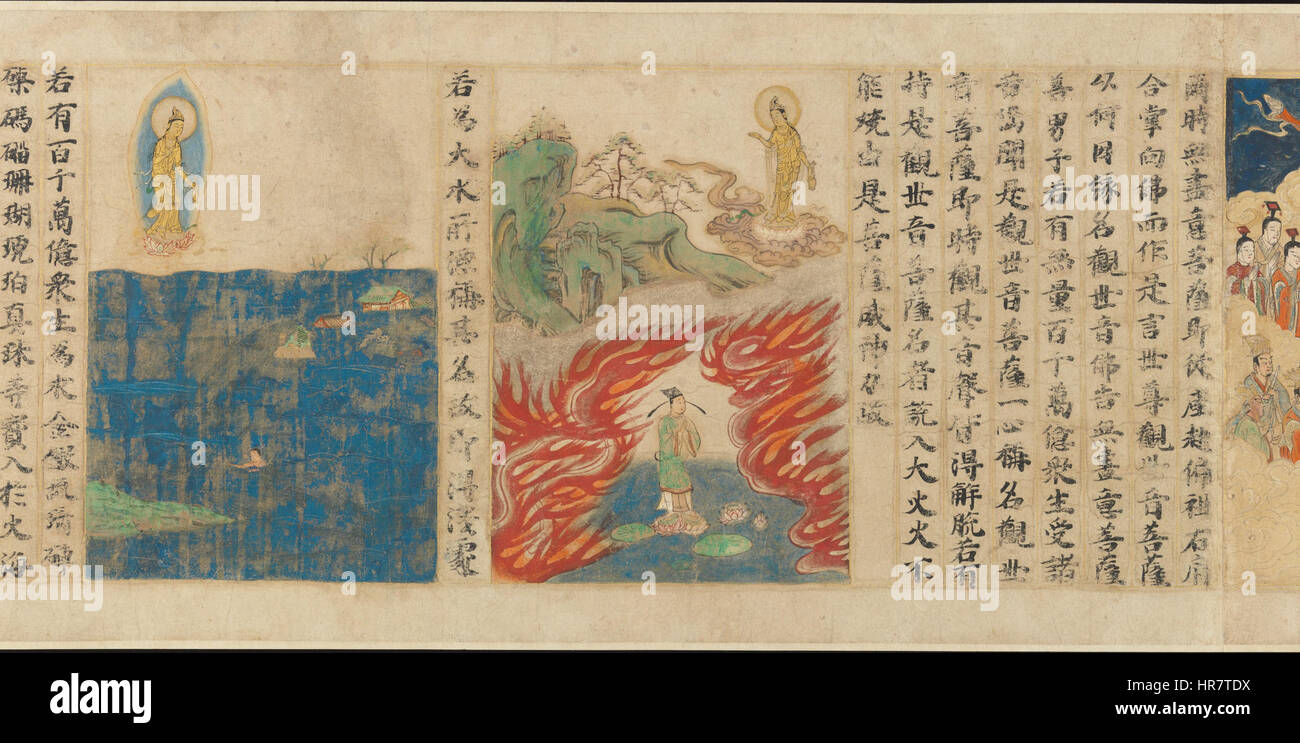 爾時無盡意菩薩即從座起偏袒右肩
合掌向佛而作是言世尊觀世音菩薩
以何因緣名觀世音佛告無盡意菩薩
善男子若有無量百千萬億衆生受諸
苦惱聞是觀世音菩薩一心稱名觀世
音菩薩即時觀其音聲皆得解脫若有
持是觀世音菩薩名者設入大火火不
能燒由是菩薩威神力故
若為大水所漂稱其名故即得淺處
若有百千萬億衆生為求金銀琉璃硨
磲碼碯珊瑚琥珀真珠等寶入於大海
a alamy stock photo
HR7TDX
www.alamy.com